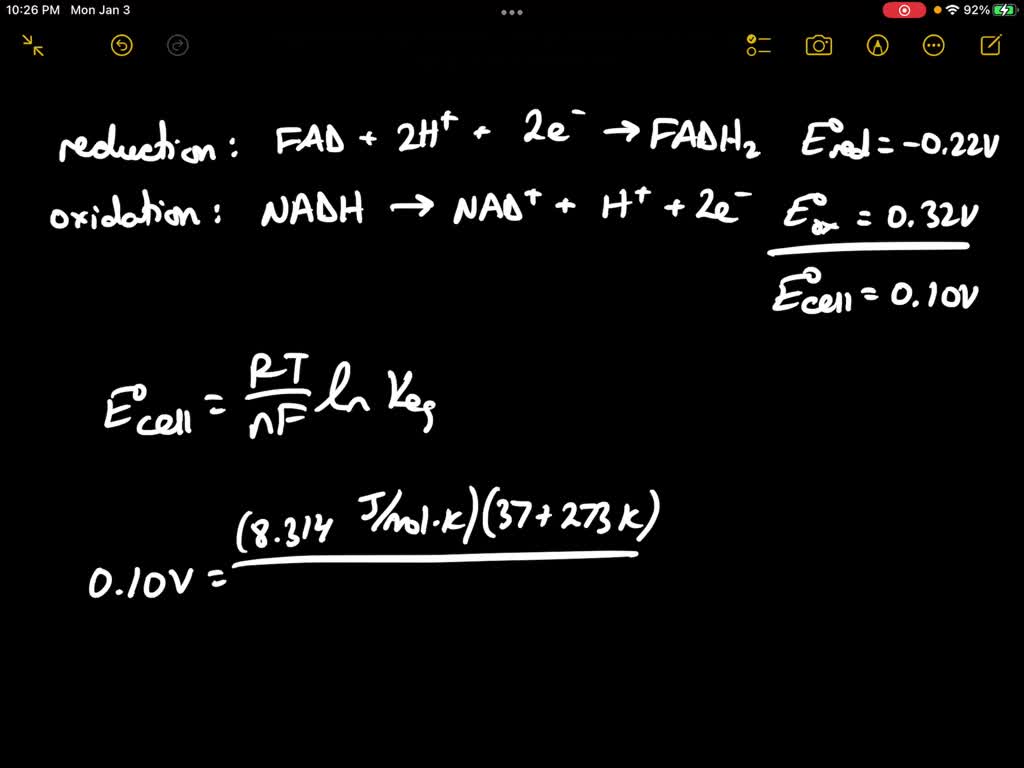 10:26 PM Mon Jan 3
92%
reduction: FAD + 2H⁺ + 2e⁻ → FADH₂ E°red = -0.22V
oxidation: NADH → NAD⁺ + H⁺ + 2e⁻ E°ox = 0.32V
E°cell = 0.10V
E°cell = RT/nF ln Keq
0.10V = (8.314 J/mol·K)(37+273K)